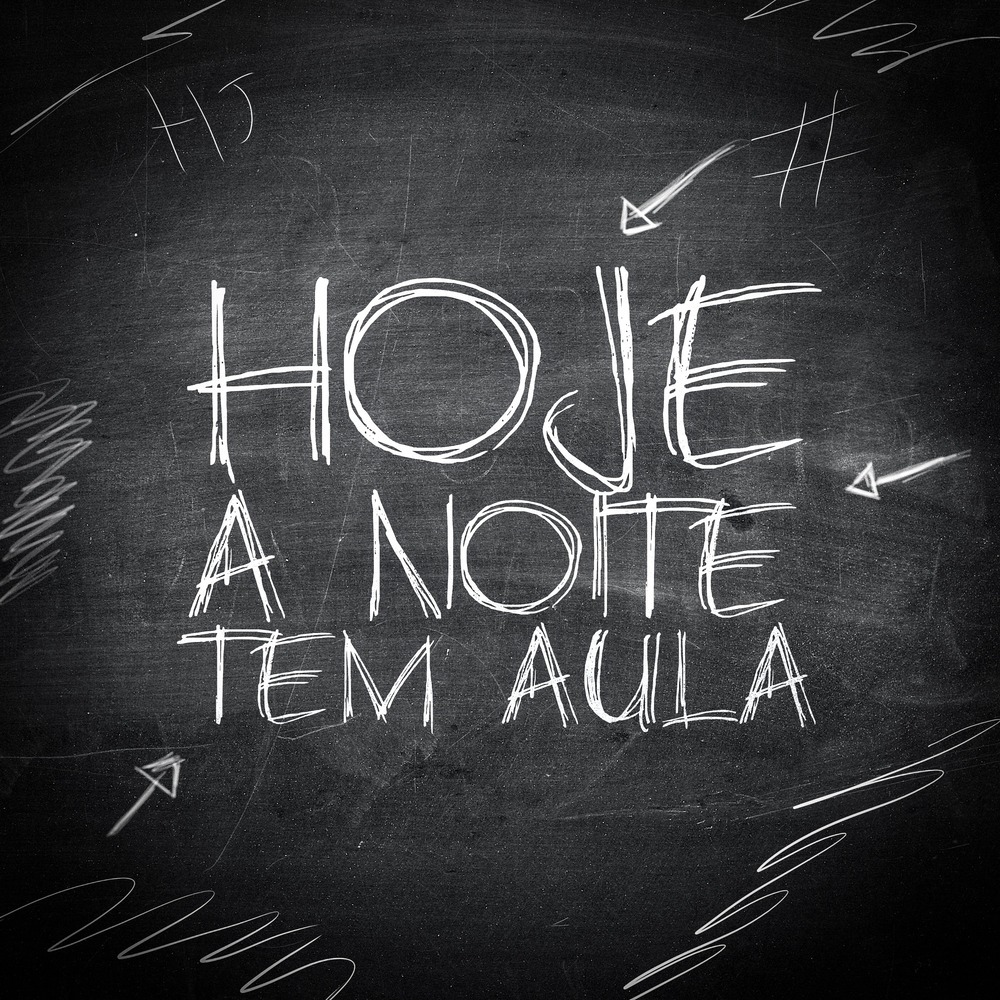 HJ #
HOJE
A NOITE
TEM AULA